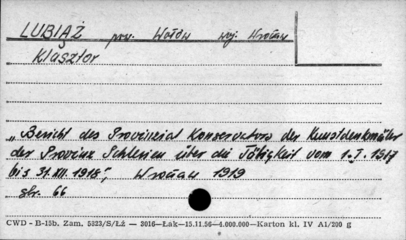 LUBIĄŻ pow. Wołów woj. Wrocław
Klasztor
„Bericht des Provinzial Konservators der Kunstdenkmäler
der Provinz Schlesien über die Tätigkeit vom 1.I.1917
bis 31.XII.1918", Wrocław 1919
str. 66
CWD - B-15b. Zam. 5823/S/Łż — 2016—Łak—15.11.56—4.000.000—Karton kl. IV A1/200 g